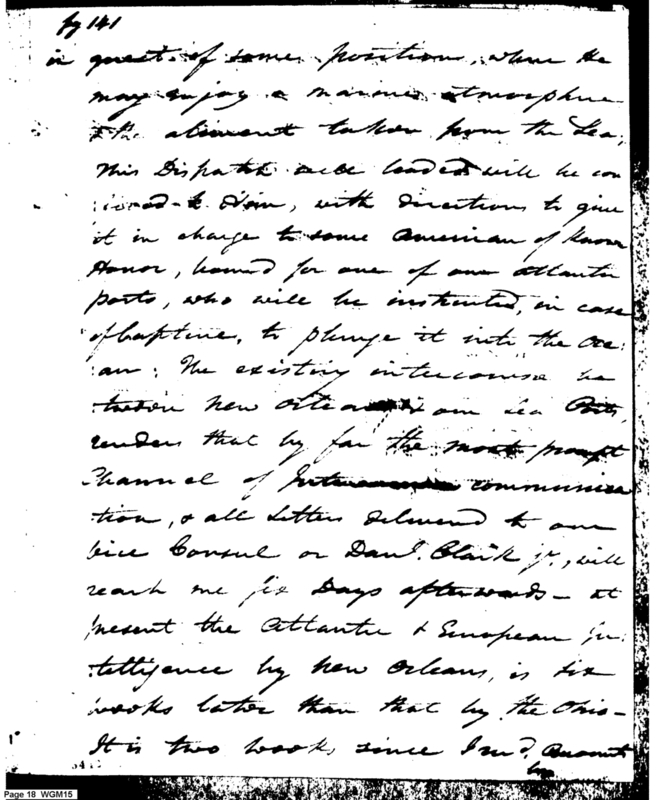 pg 141
in quest of some position, where He
may enjoy a marine atmosphere
& the aliment taken from the Sea,
This Dispatch will be
to Him, with directions to give
it in charge to some American of known
Honor, bound for one of our Atlantic
ports, who will be instructed, in case
of Capture, to plunge it into the Oce
an: The existing intercourse be
tween New Orleans & our Sea Ports,
renders that by far the most prompt
Channel of communica
tion, & all Letters delivered to our
Vice Consul or Danl. Clark jr., will
reach me six Days afterwards — at
present the Atlantic & European In
telligence by New Orleans, is six
weeks later than that by the Ohio —
It is two weeks since I recd. Accounts
Page 18 WGM15